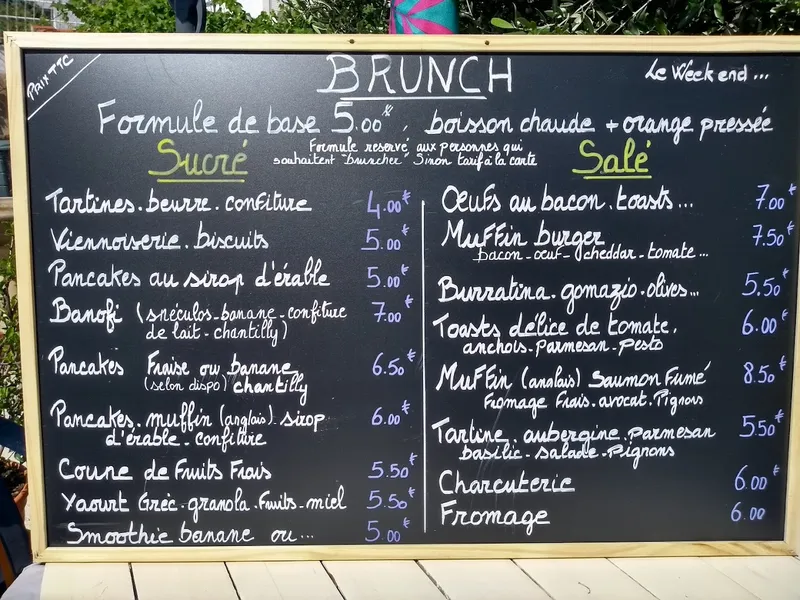 Prix TTC
BRUNCH
Le Week end...
Formule de base 5.00€, boisson chaude + orange pressée
Formule reservé aux personnes qui
souhaitent "bruncher" Sinon tarif à la carte
Sucré
Tartines. beurre. confiture 4.00€
Viennoiserie. biscuits 5.00€
Pancakes au sirop d'érable 5.00€
Banofi (spéculos-banane-confiture 7.00€
de lait-chantilly)
Pancakes Fraise ou banane 6.50€
(selon dispo) chantilly
Pancakes. muffin (anglais). sirop 6.00€
d'érable-confiture
Coupe de Fruits Frais 5.50€
Yaourt Grèc. granola. fruits-miel 5.50€
Smoothie banane ou... 5.00€
Salé
Oeufs au bacon. toasts... 7.00€
Muffin burger 7.50€
bacon-oeuf-cheddar-tomate...
Burratina. gomazio. olives... 5.50€
Toasts délice de tomate. 6.00€
anchois. parmesan-pesto
Muffin (anglais) Saumon Fumé 8.50€
Fromage Frais. avocat. Pignons
Tartine. aubergine. parmesan 5.50€
basilic-salade-pignons
Charcuterie 6.00€
Fromage 6.00